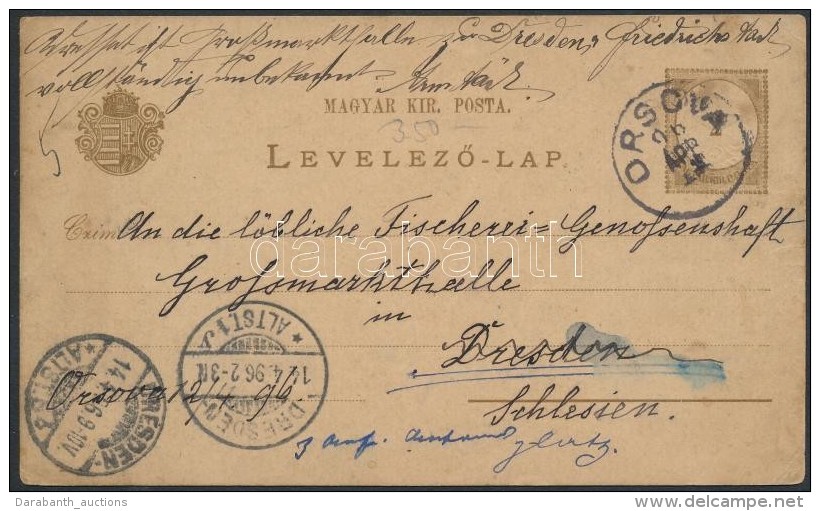 Adressat ist Großmarkthalle zu Dresden, Friedrichstadt
vollständig unbekannt.
MAGYAR KIR. POSTA.
3.50 —
LEVELEZŐ-LAP.
ORSOVA
APR
Czim An die löbliche Fischerei= Genossenshaft
Grossmarkthalle
in
Dresden
Schlesien.
Orsova 12/4 96
DRESDEN
* ALTST. 1
14.4.96. 2-3N
DRESDEN-
* ALTST.
14.4.96. 9-10V.
Glatz.
darabanth
Darabanth_auctions